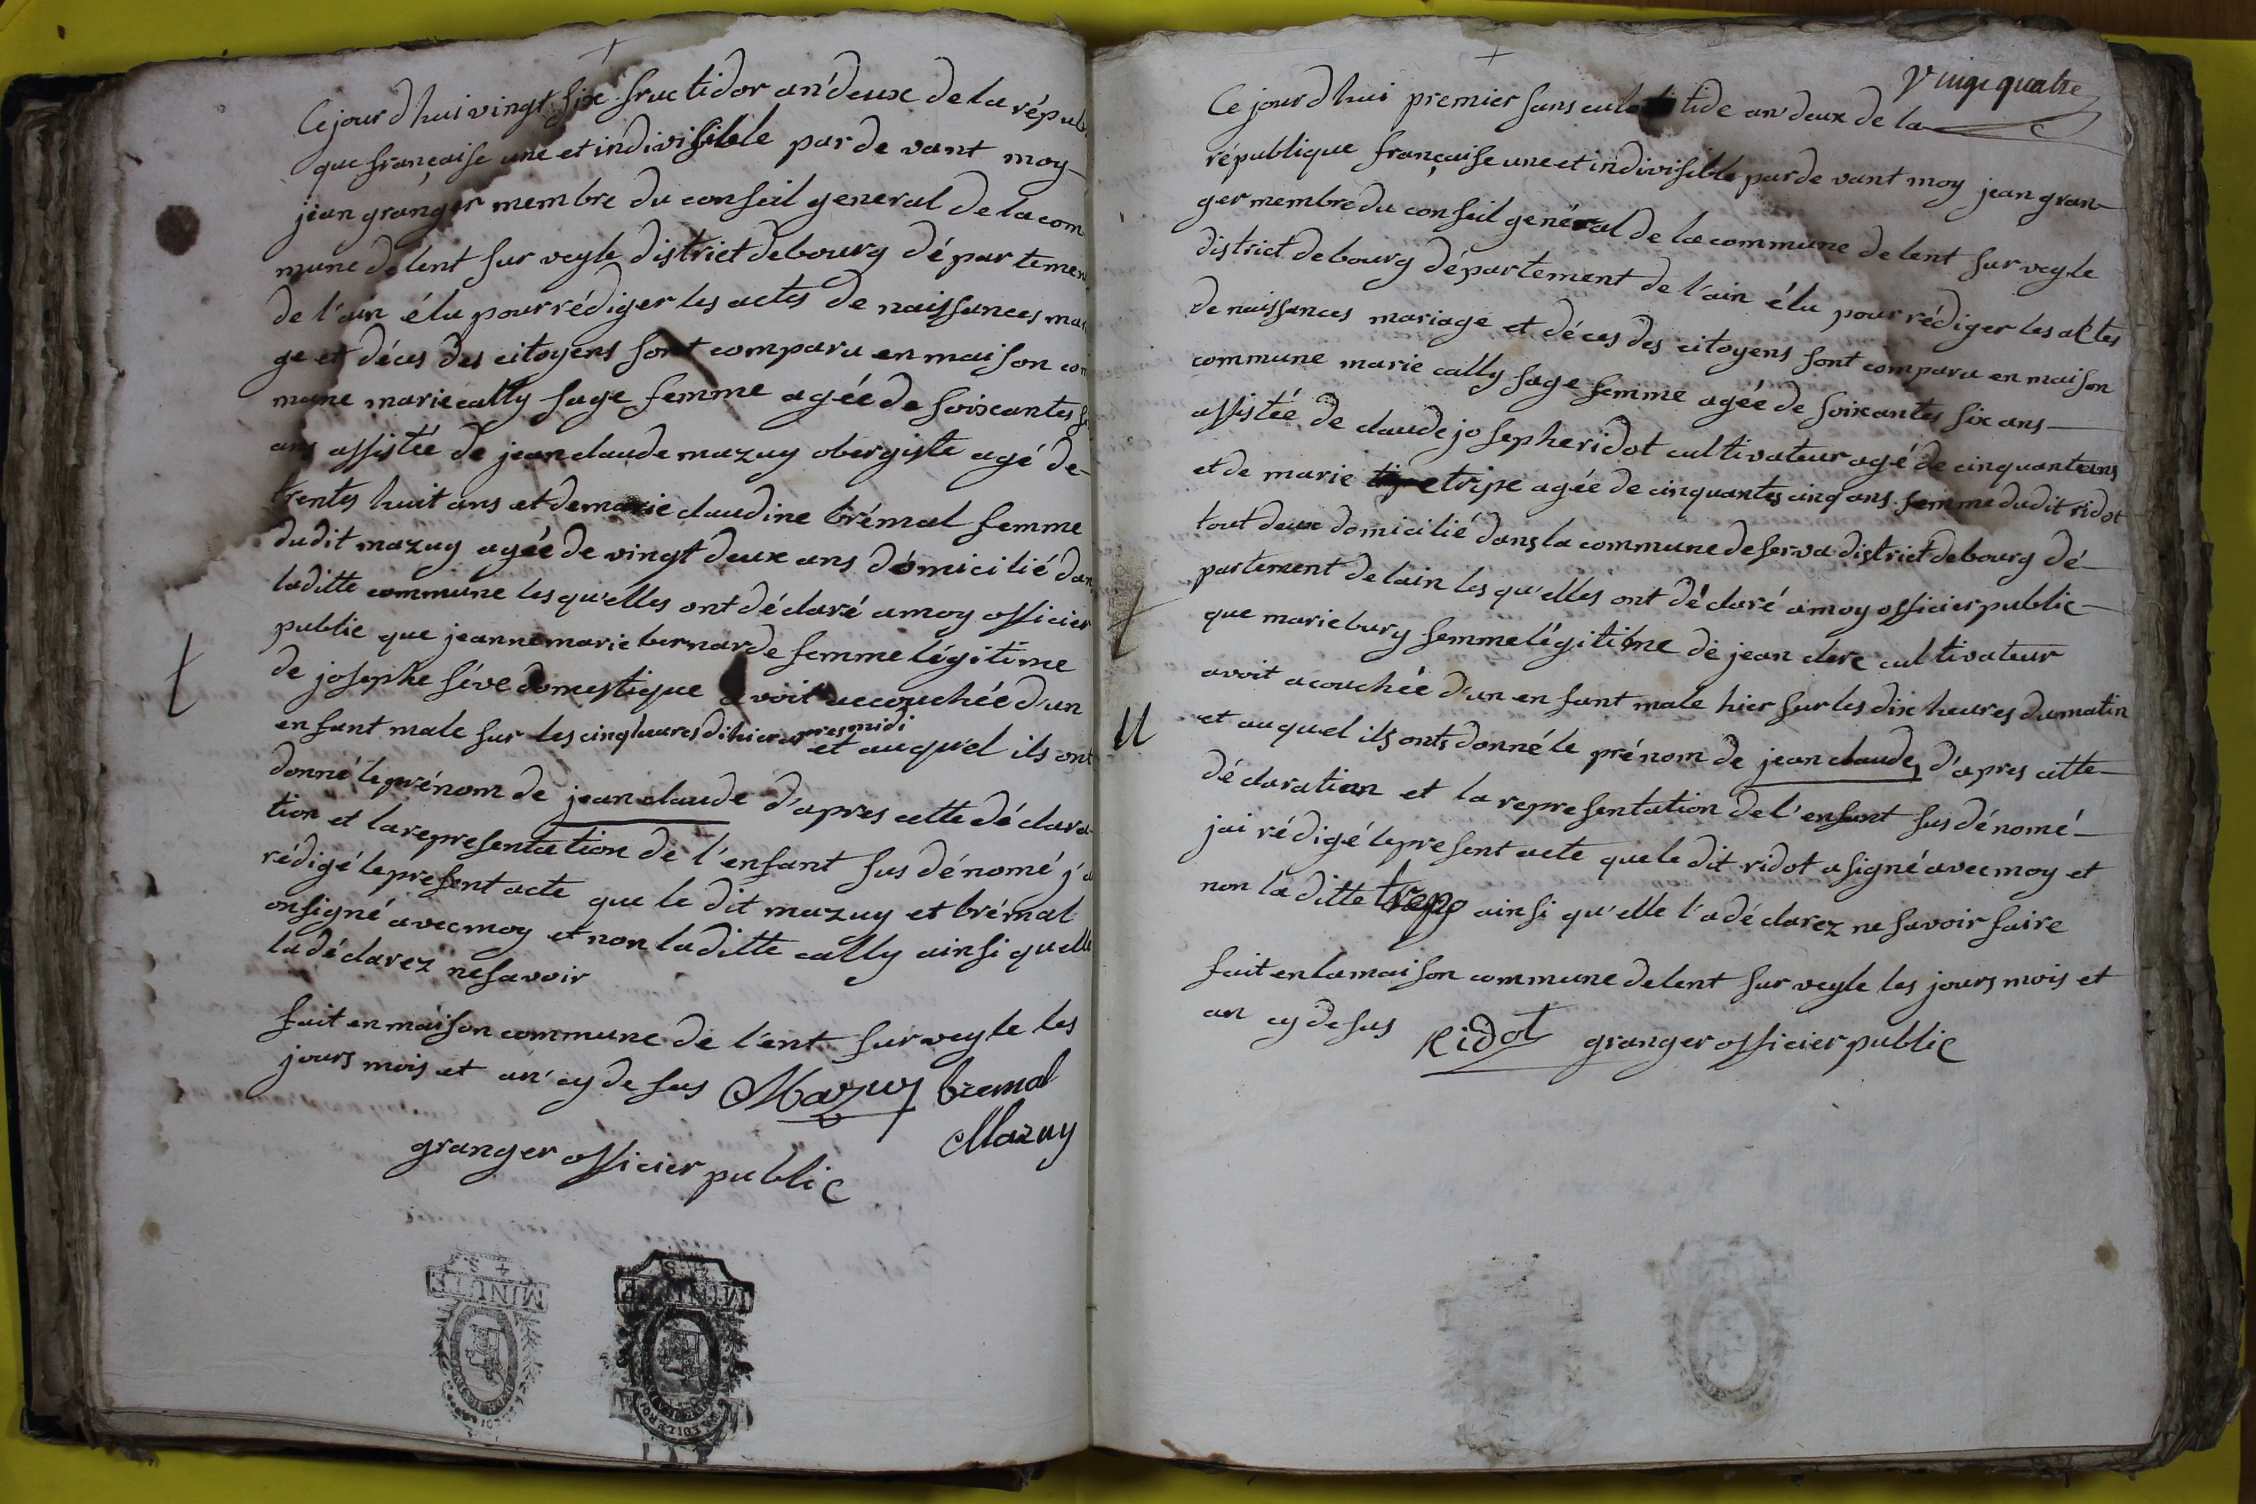 Ce jour d hui vingt six fructidor an deux de la répu
que française une et indivisible par de vant moy
jean granger membre du conseil general de la com
mune de lent sur veyle district de bourg départemen
de l'ain élu pour rédiger les actes de naissances ma
ge et déces des citoyens sont comparu en maison co
mune marie cally sage femme agée de soixantes
ans assistée de jean claude mazuy obergiste agé de
trentes huit ans et de marie claudine brémal femme
dudit mazuy agée de vingt deux ans domicilié dan
laditte commune les qu'elles ont déclaré a moy officier
public que jeanne marie bernarde femme légitime
de josephe séve domestique avoit accouchée d'un
enfant male sur les cinq heures di hier apres midi et au quel ils ont
donné le prénom de jean claude d'apres cette déclara
tion et la representation de l'enfant sus dénomé j'a
rédigé le present acte que le dit mazuy et brémal
on signé avec moy et non laditte cally ainsi quelle
la déclarez ne savoir
fait en maison commune de l'ent sur veyle les
jours mois et an cy de sus Mazuy bremal
Mazuy
granger officier public
MINUTE
MINUTE
vingt quatre
Ce jour d hui premier sans culotide an deux de la
république française une et indivisible par de vant moy jean gran
ger membre du conseil genéral de la commune de lent sur veyle
district de bourg département de l'ain élu pour rédiger les actes
de naissances mariage et déces des citoyens sont comparu en maison
commune marie cally sage femme agée de soixantes six ans
assistée de claude josephe ridot cultivateur agé de cinquante ans
et de marie tripe agée de cinquantes cinq ans femme dudit ridot
tout deux domicilié dans la commune de serva district de bourg dé
partement de lain les qu'elles ont déclaré a moy officier public
que marie bury femme légitime de jean clerc cultivateur
avoit acouchée d'un enfant male hier sur les dix heures du matin
et au quel ils onts donné le prénom de jean claude d'apres cette
déclaration et la representation de l'enfant sus dénomé
jai rédigé le present acte que le dit ridot a signé avec moy et
non la ditte ainsi qu'elle l'a déclarez ne savoir faire
fait en la maison commune de lent sur veyle les jours mois et
an cy de sus Ridot granger officier public